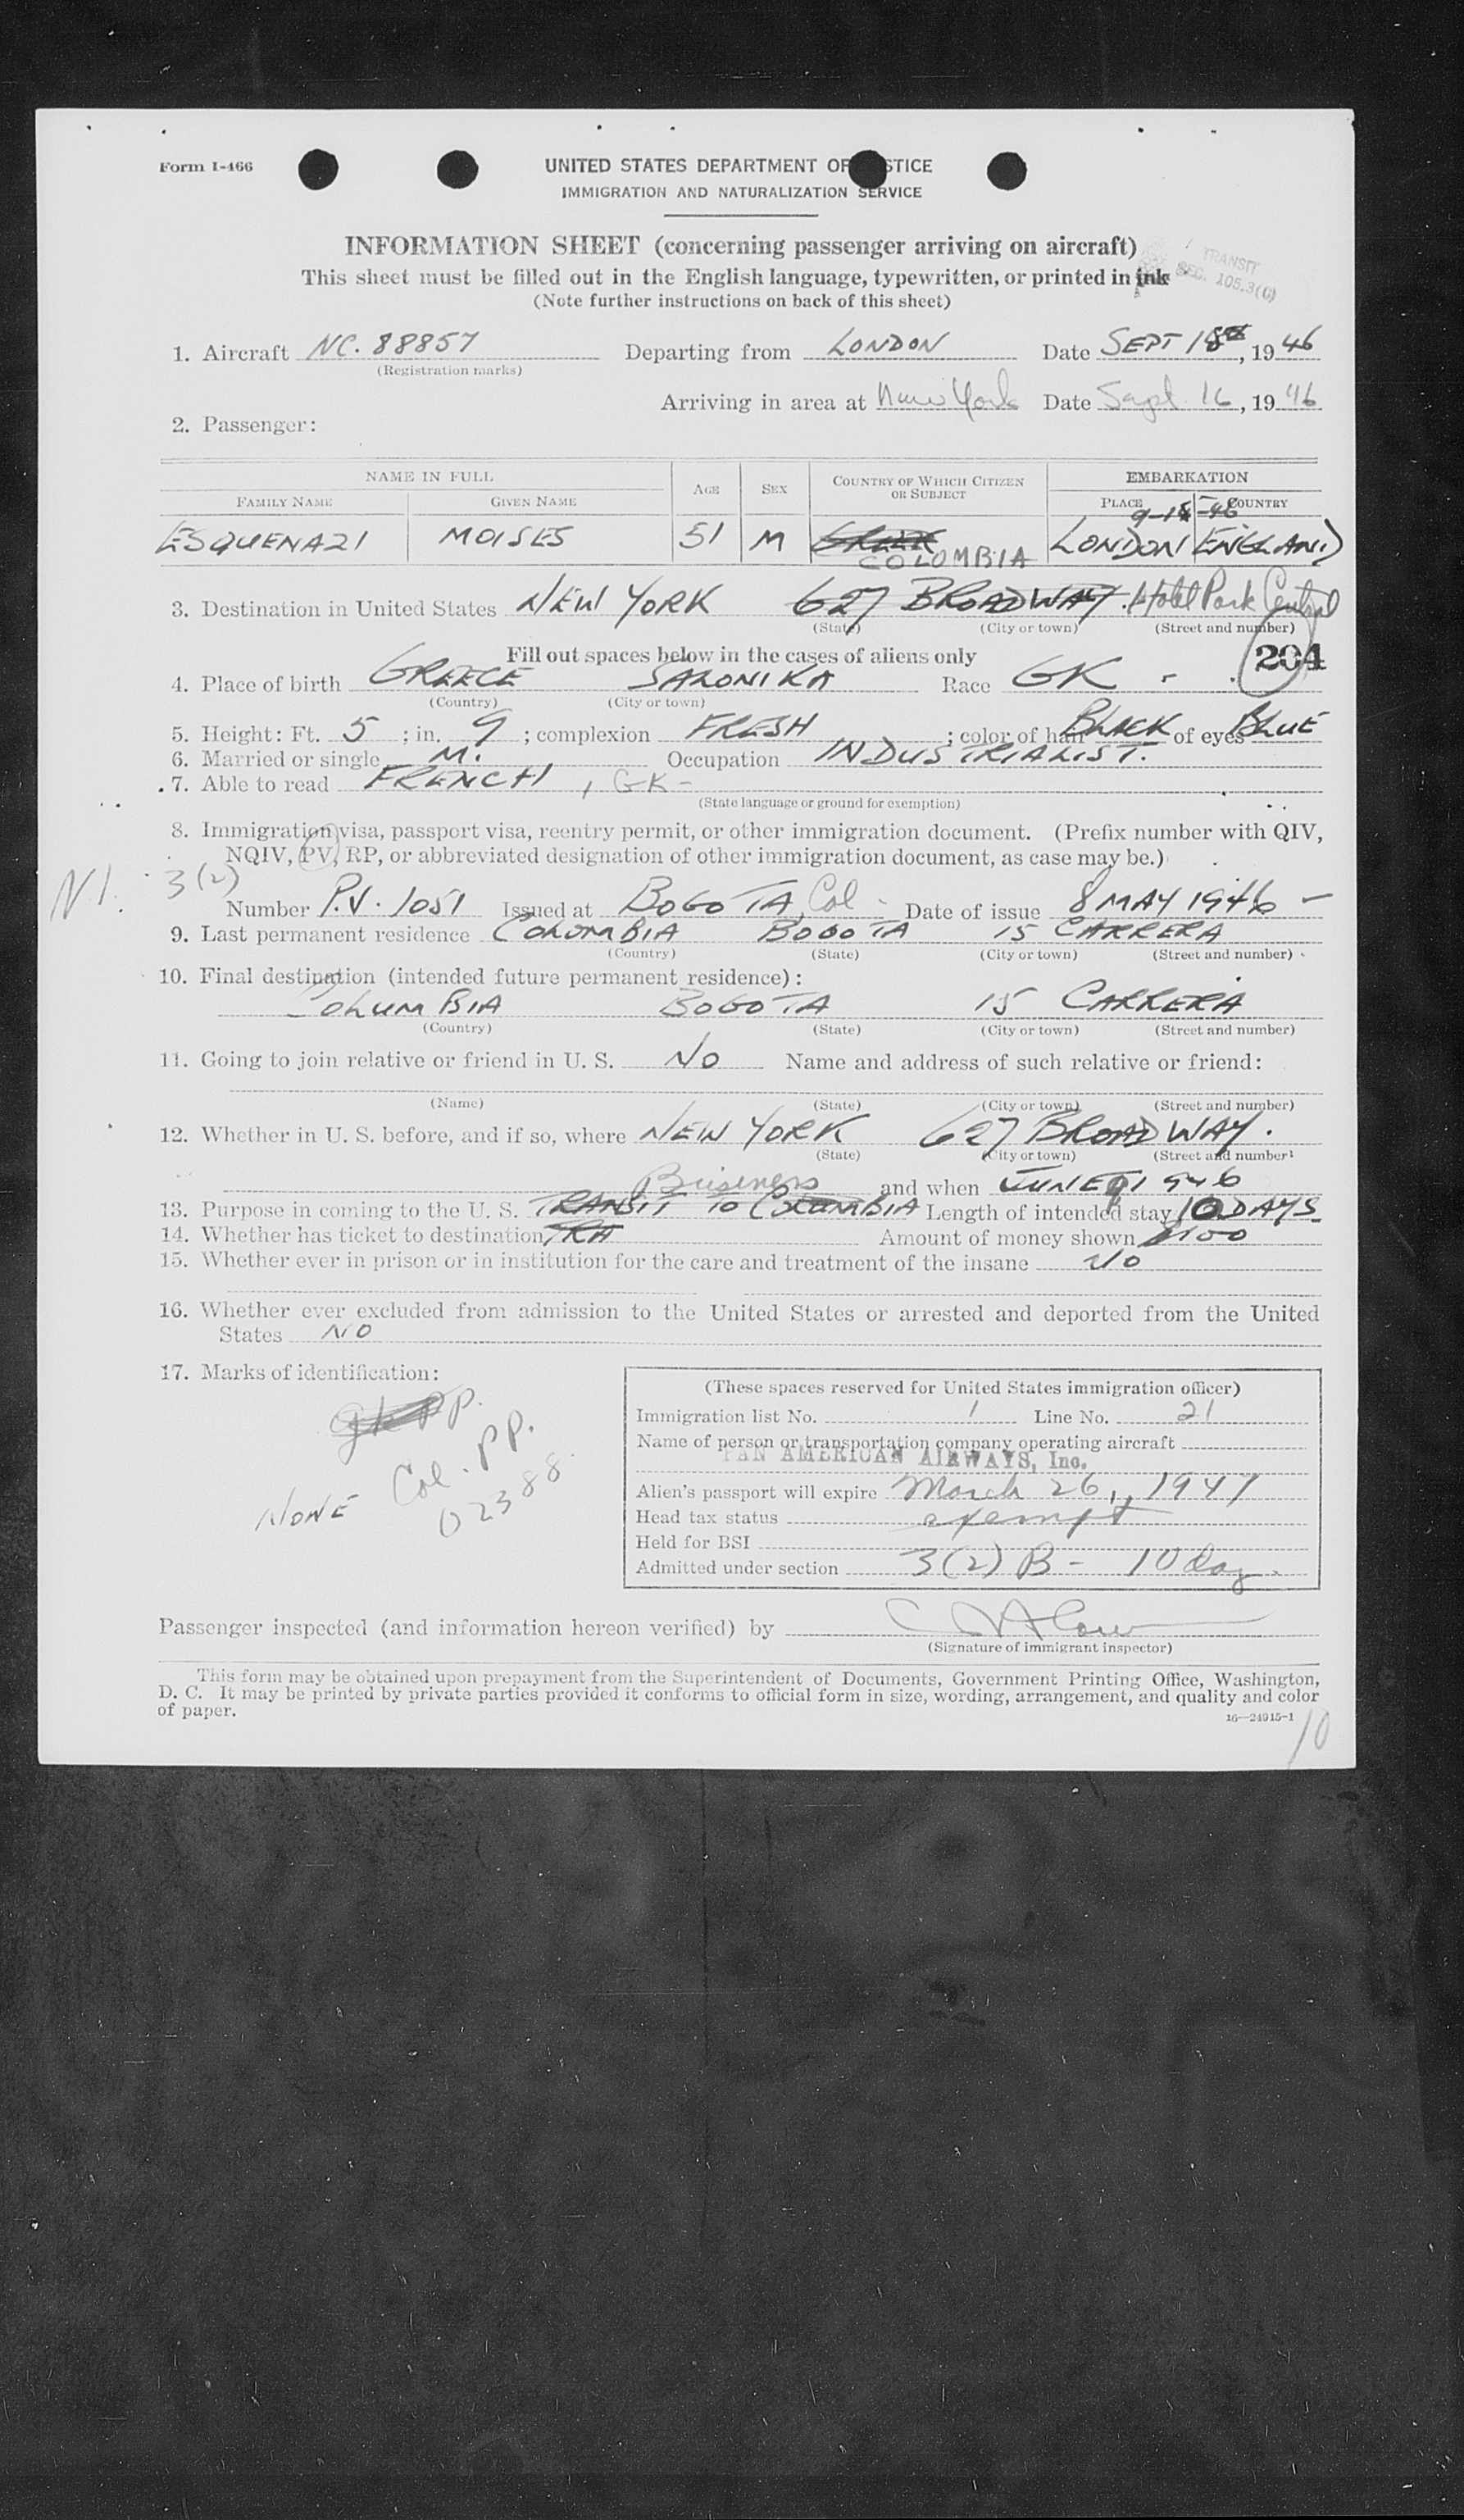 Form I-466
UNITED STATES DEPARTMENT OF STICE
IMMIGRATION AND NATURALIZATION SERVICE
INFORMATION SHEET (concerning passenger arriving on aircraft)
This sheet must be filled out in the English language, typewritten, or printed in ink
TRANSIT
SEC. 105.3(C)
(Note further instructions on back of this sheet)
1. Aircraft NC. 88857 Departing from LONDON Date SEPT , 19 46
(Registration marks)
Arriving in area at New York Date Sept 16, 19 46
2. Passenger:
NAME IN FULL AGE SEX COUNTRY OF WHICH CITIZEN OR SUBJECT EMBARKATION
FAMILY NAME GIVEN NAME PLACE COUNTRY
ESQUENAZI MOISES 51 M GREEK COLOMBIA LONDON ENGLAND
3. Destination in United States NEW YORK 627 BROADWAY. Hotel Park Central
(State) (City or town) (Street and number)
Fill out spaces below in the cases of aliens only 204
4. Place of birth GREECE SALONIKA Race GK -
(Country) (City or town)
5. Height: Ft. 5 ; in. 9 ; complexion FRESH ; color of hair BLACK of eyes BLUE
6. Married or single M. Occupation INDUSTRIALIST.
7. Able to read FRENCH , GK -
(State language or ground for exemption)
8. Immigration visa, passport visa, reentry permit, or other immigration document. (Prefix number with QIV,
NQIV, PV, RP, or abbreviated designation of other immigration document, as case may be.)
3(2)
Number P.V. 1051 Issued at BOGOTA, Col - Date of issue 8 MAY 1946 -
9. Last permanent residence COLUMBIA BOGOTA 15 CARRERA
(Country) (State) (City or town) (Street and number)
10. Final destination (intended future permanent residence):
COLUMBIA BOGOTA 15 CARRERA
(Country) (State) (City or town) (Street and number)
11. Going to join relative or friend in U. S. NO Name and address of such relative or friend:
(Name) (State) (City or town) (Street and number)
12. Whether in U. S. before, and if so, where NEW YORK 627 BROADWAY.
(State) (City or town) (Street and number)
Business and when JUNE 1946
13. Purpose in coming to the U. S. TRANSIT TO COLUMBIA Length of intended stay 10 DAYS
14. Whether has ticket to destination TRA Amount of money shown $100
15. Whether ever in prison or in institution for the care and treatment of the insane NO
16. Whether ever excluded from admission to the United States or arrested and deported from the United
States NO
17. Marks of identification:
gk pp.
Col. pp.
02388
NONE
(These spaces reserved for United States immigration officer)
Immigration list No. 1 Line No. 21
Name of person or transportation company operating aircraft
PAN AMERICAN AIRWAYS, Inc.
Alien's passport will expire March 26, 1947
Head tax status exempt
Held for BSI
Admitted under section 3(2) B - 10 day.
Passenger inspected (and information hereon verified) by
(Signature of immigrant inspector)
This form may be obtained upon prepayment from the Superintendent of Documents, Government Printing Office, Washington,
D. C. It may be printed by private parties provided it conforms to official form in size, wording, arrangement, and quality and color
of paper.
16—24915-1
10